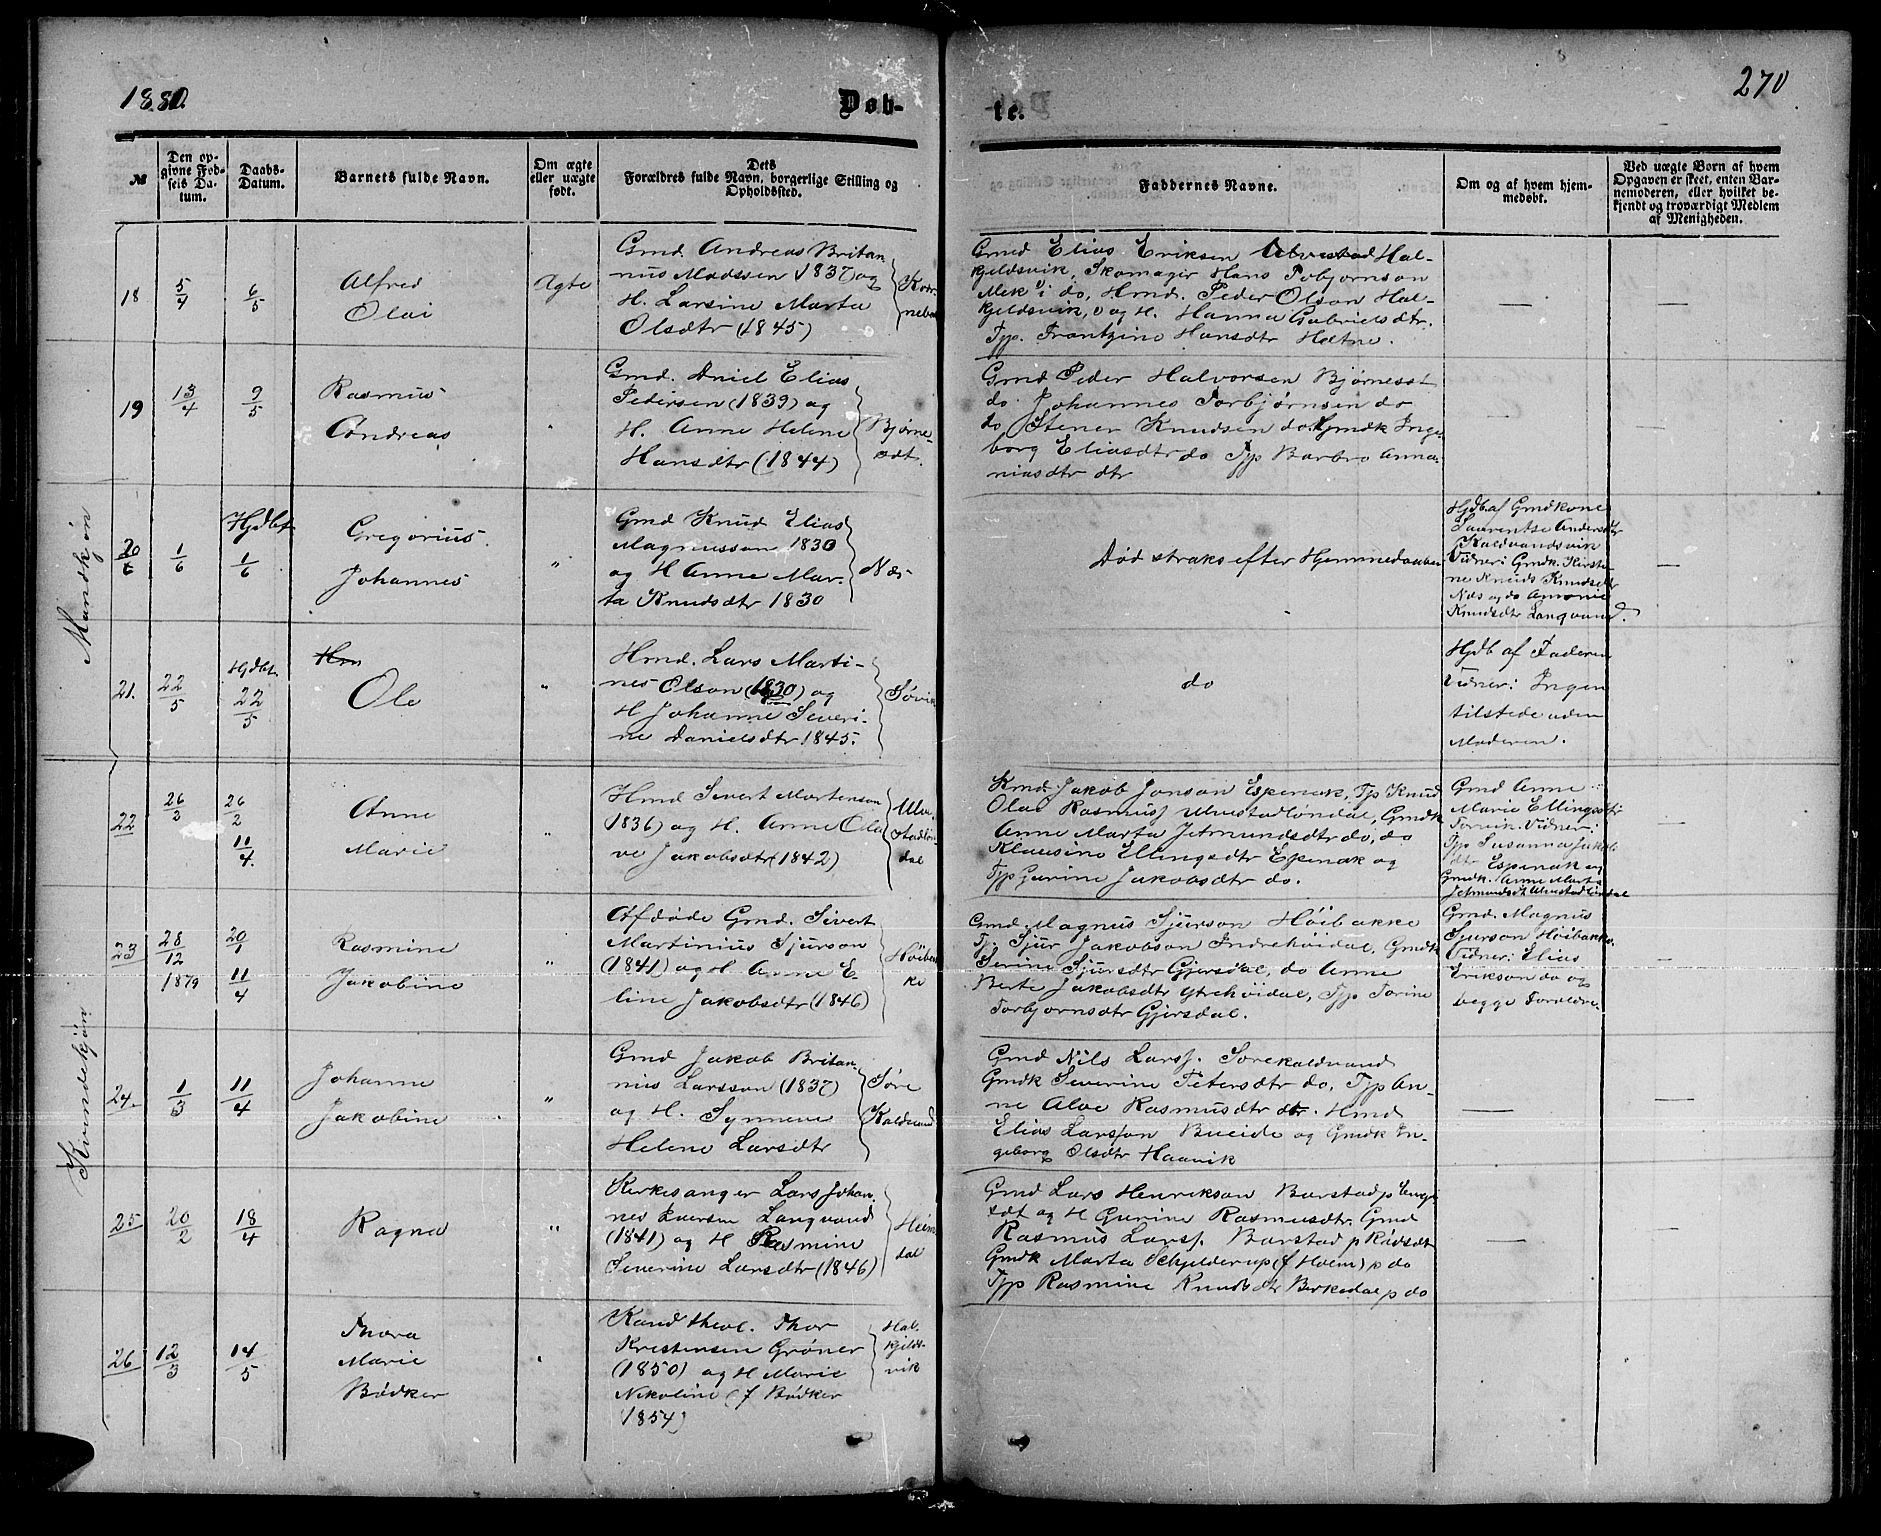 1880.
Døb-
te.
270
№
Den op-
givne Fød-
sels Da-
tum.
Daabs-
Datum.
Barnets fulde Navn.
Om ægte
eller uægte
født.
Dets
Forældres fulde Navn, borgerlige Stilling og
Opholdssted.
Faddernes Navne.
Om og af hvem hjem-
medøbt.
Ved uægte Børn af hvem
Opgaven er skeet, enten Bar-
nemoderen, eller hvilket be-
kjendt og troværdigt Medlem
af Menigheden.
Mandkjøn
18
5/4
6/5
Alfred
Olai
Ægte
Gmd. Andreas Britan
nius Madssen 1837) og
H. Larsine Marta
Olsdtr (1845)
Gmd Elias Eriksen Ulvestad Hal-
kjeldsvik, Skomager Hans Tobjørnson
Mek i do, Hmd. Peder Olson Hal-
kjeldsvik, og H. Hanna Gabrielsdtr.
Tjp. Frantzine Hansdtr Hatne.
—
—
19
13/4
9/5
Rasmus
Andreas
"
Gmd. Daniel Elias
Pedersen (1839) og
H. Anne Helene
Hansdtr (1844)
Bjørne-
ödt.
Gmd Peder Halvorsen Bjørnesdt
do Johannes Torbjørnsen do
do Stener Knudsen do Gmdk Inge
borg Eliasdtr do Tjp Barbro Anna-
niasdtr dtr
—
—
20
1/6
Hjdbt
1/6
Gregorius
Johannes
"
Gmd Knud Elias
Magnusson 1830
og H Anne Mar-
ta Knudsdtr 1830
Næs
Død straks efter Hjemmedaaben
Hjdb af Gmdkone
Laurentse Andersdtr
Kaldvandsvik
Vidner: Gmdk. Kirsti-
ne Knuds Knudsdtr
Næs og do Amonie
Knudsdtr Langvand.
—
21.
22/5
Hjdbt.
22/5
Hm
Ole
"
Hmd. Lars Marti-
nes Olson (1830) og
H Johanne Severi-
ne Danielsdtr 1845.
Søvik
do
Hjdb af Faderen
Vidner: Ingen
tilstede uden
Moderen.
Kvindekjøn
22
26/2
26/2
11/4.
Anne
Marie
"
Hmd Sivert Mortenson
1836) og H. Anne Ola
ve Jakobsdtr (1842)
Ulve
stadløn
dal
Kmd. Jakob Jonson Espenak, Tjp Knud
Olai Rasmusf Ulvestadløndal, Gmdk
Anne Marta Jetmundsdtr do, do
Klausine Ellingsdtr Espenak og
Tjp Gurine Jakobsdtr do.
Gmd Anne
Marie Ellingsdtr
Torvik. Vidner:
Tjp Susanna Jakob
dtr Espenak og
Gmdk. Anne Marta
Jetmundsdt Ulvestadløndal
—
23
28/12
1879
20/1
11/4
Rasmine
Jakobine
"
Afdøde Gmd. Sivert
Martinius Sjurson
(1841) og H. Anne E
line Jakobsdtr (1846)
Höibak
ke
Gmd. Magnus Sjurson Höibakke
Tj. Sjur Jakobson Indrehöidal, Gmdk
Serine Sjursdtr Gjersdal, do Anne
Berte Jakobsdtr Ytrehöidal, Tjp Torine
Torbjornsdtr Gjersdal.
Gmd. Magnus
Sjurson Höibakke.
Vidner: Elias
Erikson do og
begge Foreldre.
—
24.
1/3
11/4
Johanne
Jakobine
"
Gmd Jakob Britan-
nius Larsson (1837)
og H. Synneve
Helene Larsdtr
Søre
Kaldvand
Gmd Nils Larsf. Sorekaldvand
Gmdk Severine Petersdtr do, Tjp An-
ne Alve Rasmusdtr dtr. Hmd
Elias Larsson Bueide og Gmdk In-
geborg Olsdtr Haavik
—
—
25
20/2
18/4
Ragna
"
Kirkesanger Lars Johan-
nes Iversen Langvand
(1841) og H Rasmine
Severine Larsdtr (1846)
Heim
dal
Gmd Lars Henrikson Barstad p
sdt og H Gurine Rasmusdtr. Gmd
Rasmus Larsf. Barstad p Rødsdt
Gmdk Marta Schjelderup (f Holm) p do
Tjp Rasmine Knudsdtr Birkedal p do
—
—
26
12/3
14/5
Thora
Marie
Bödker
"
Kand theol. Thor
Kristensen Grøner
(1850) og H Marie
Nikoline (f Bödker
1854)
Hal-
kjelds-
vik